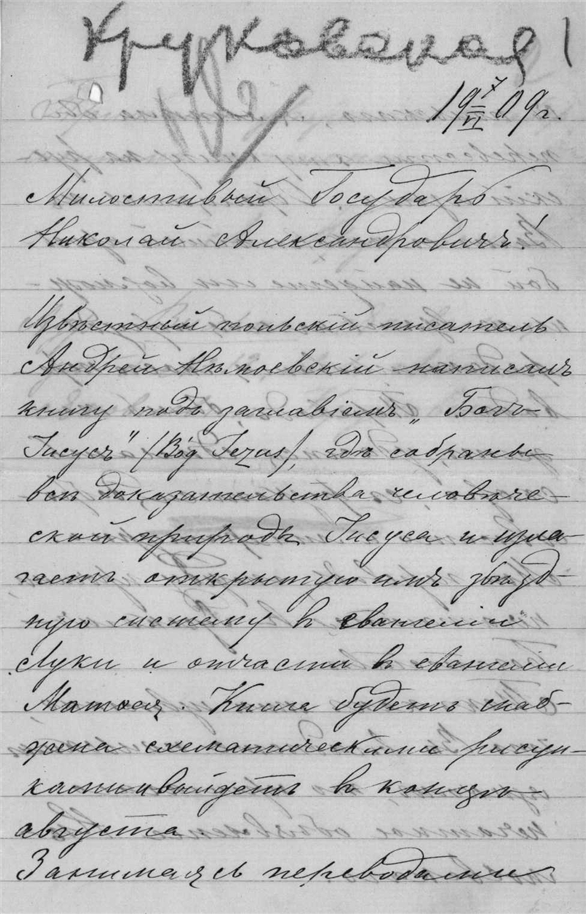 Круковская
19 V/VI 09 г.
Милостивый Государь
Николай Александровичъ!
Извѣстный польскій писатель
Андрей Нѣмоевскій написалъ
книгу подъ заглавіемъ „Богъ
Іисусъ" (Bóg Jezus), гдѣ собраны
всѣ доказательства человѣче-
ской природы Іисуса и изла-
гаетъ открытую имъ звѣзд-
ную систему въ евангеліи
Луки и отчасти въ евангеліи
Матѳея. Книга будетъ снаб-
жена схематическими рисун-
ками и выйдетъ въ концѣ
августа
Занимаясь переводами